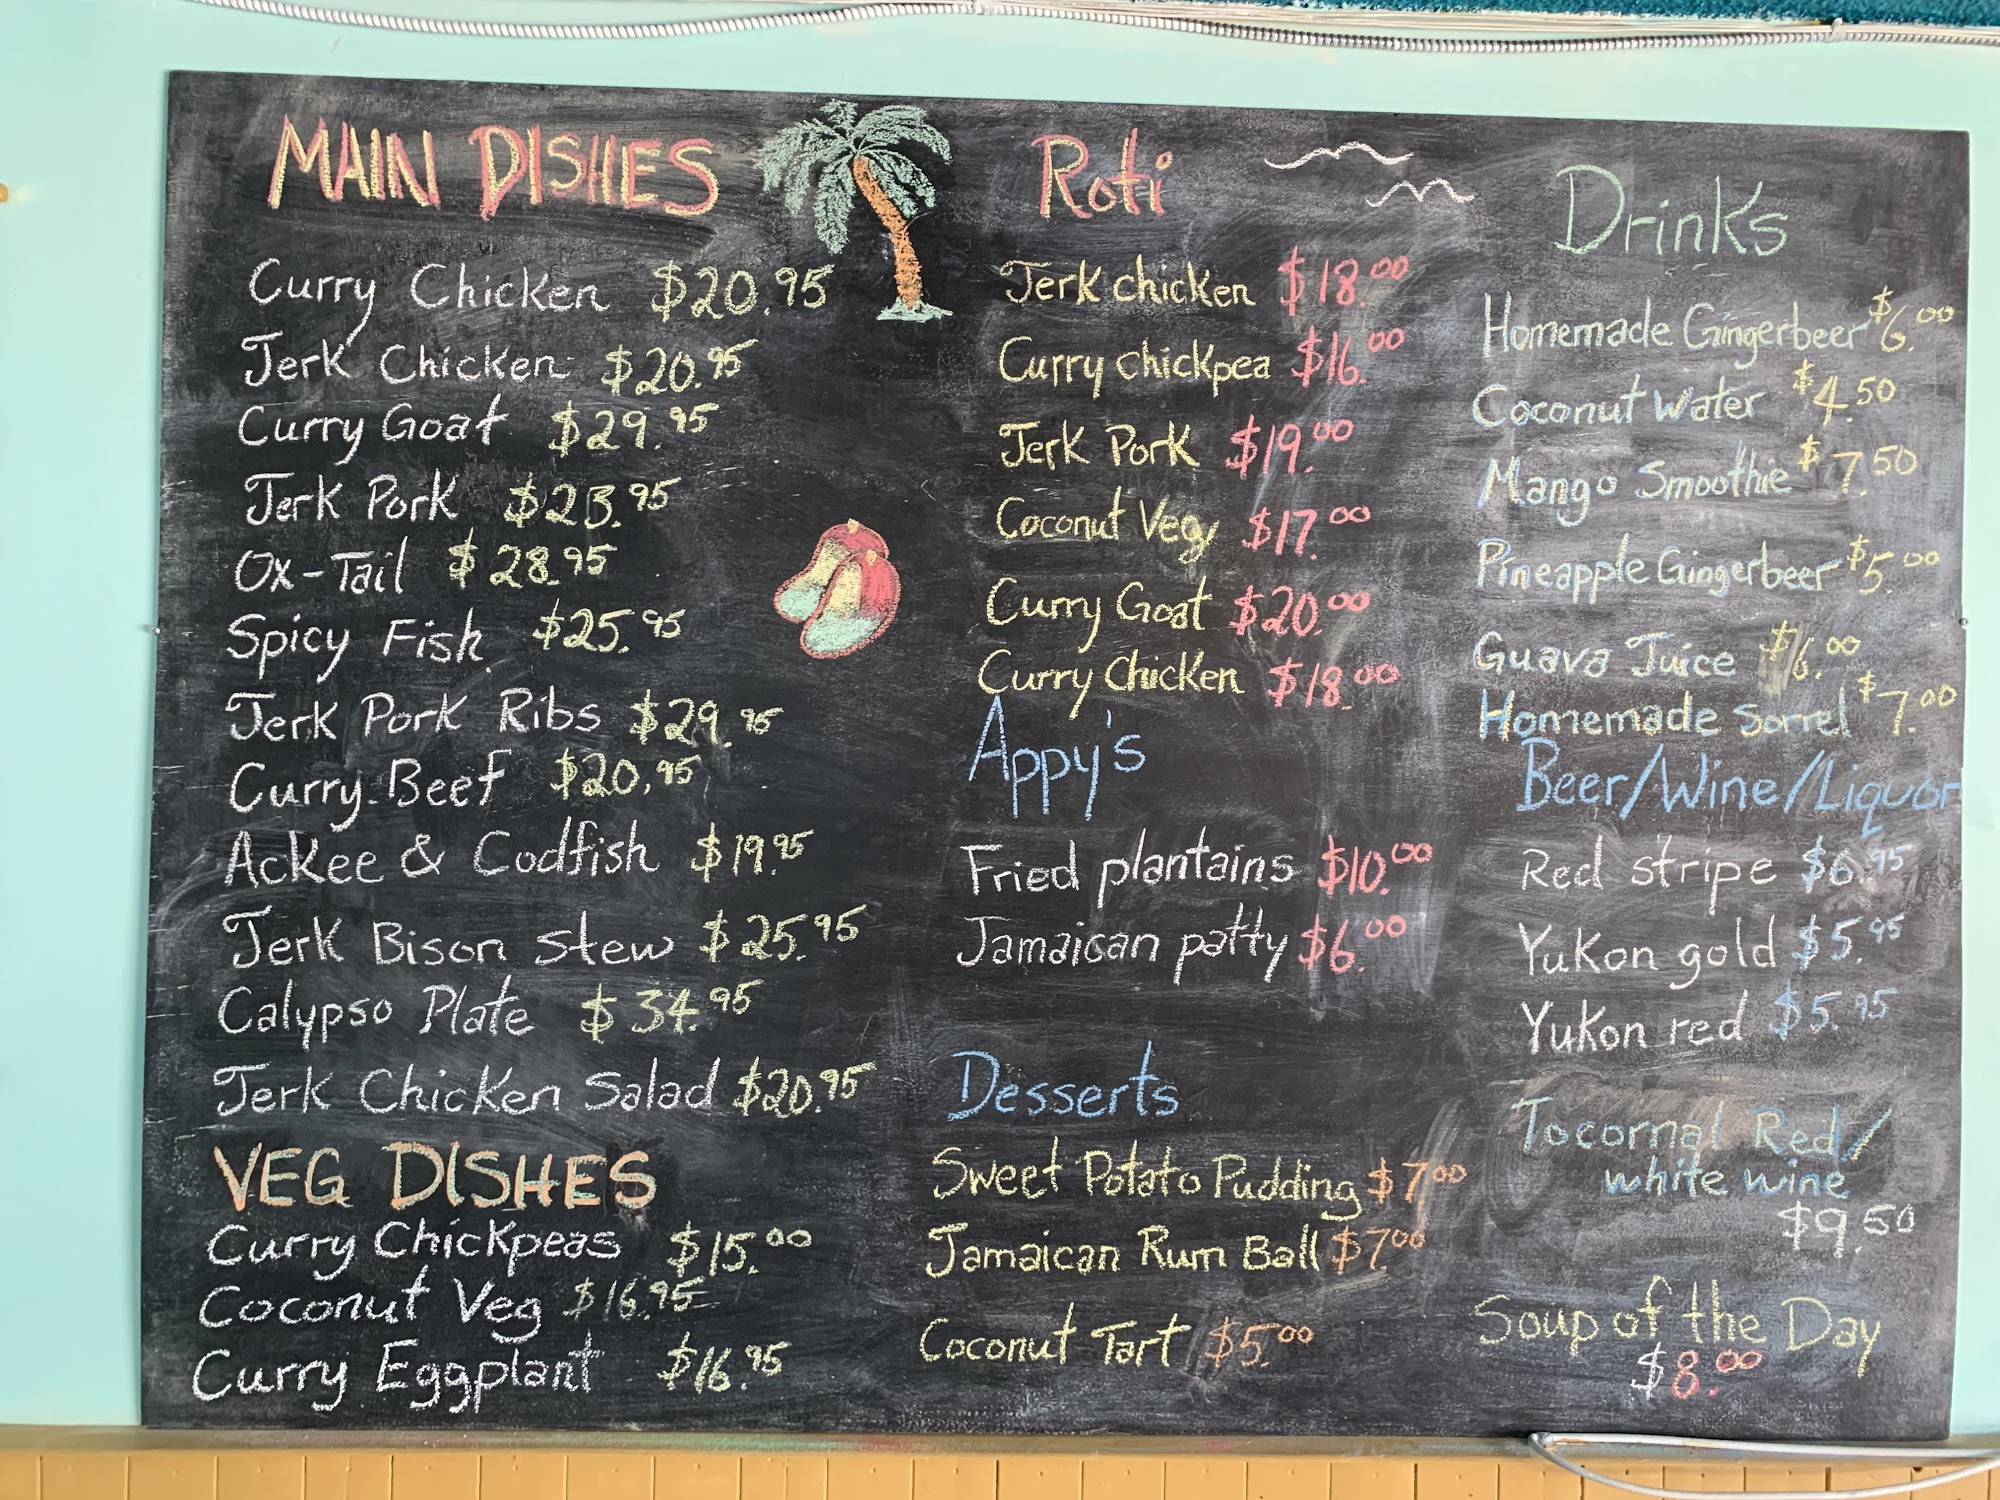 MAIN DISHES
Curry Chicken $20.95
Jerk Chicken $20.95
Curry Goat $29.95
Jerk Pork $23.95
Ox-Tail $28.95
Spicy Fish $25.95
Jerk Pork Ribs $29.95
Curry Beef $20.95
Ackee & Codfish $19.95
Jerk Bison Stew $25.95
Calypso Plate $34.95
Jerk Chicken Salad $20.95
VEG DISHES
Curry Chickpeas $15.00
Coconut Veg $16.95
Curry Eggplant $16.95
Roti
Jerk chicken $18.00
Curry chickpea $16.00
Jerk Pork $19.00
Coconut Veg $17.00
Curry Goat $20.00
Curry Chicken $18.00
Appy's
Fried plantains $10.00
Jamaican patty $6.00
Desserts
Sweet Potato Pudding $7.00
Jamaican Rum Ball $7.00
Coconut Tart $5.00
Drinks
Homemade Gingerbeer $6.00
Coconut Water $4.50
Mango Smoothie $7.50
Pineapple Gingerbeer $5.00
Guava Juice $6.00
Homemade Sorrel $7.00
Beer/Wine/Liquor
Red stripe $6.95
Yukon gold $5.95
Yukon red $5.95
Tocornal Red/
white wine
$9.50
Soup of the Day
$8.00